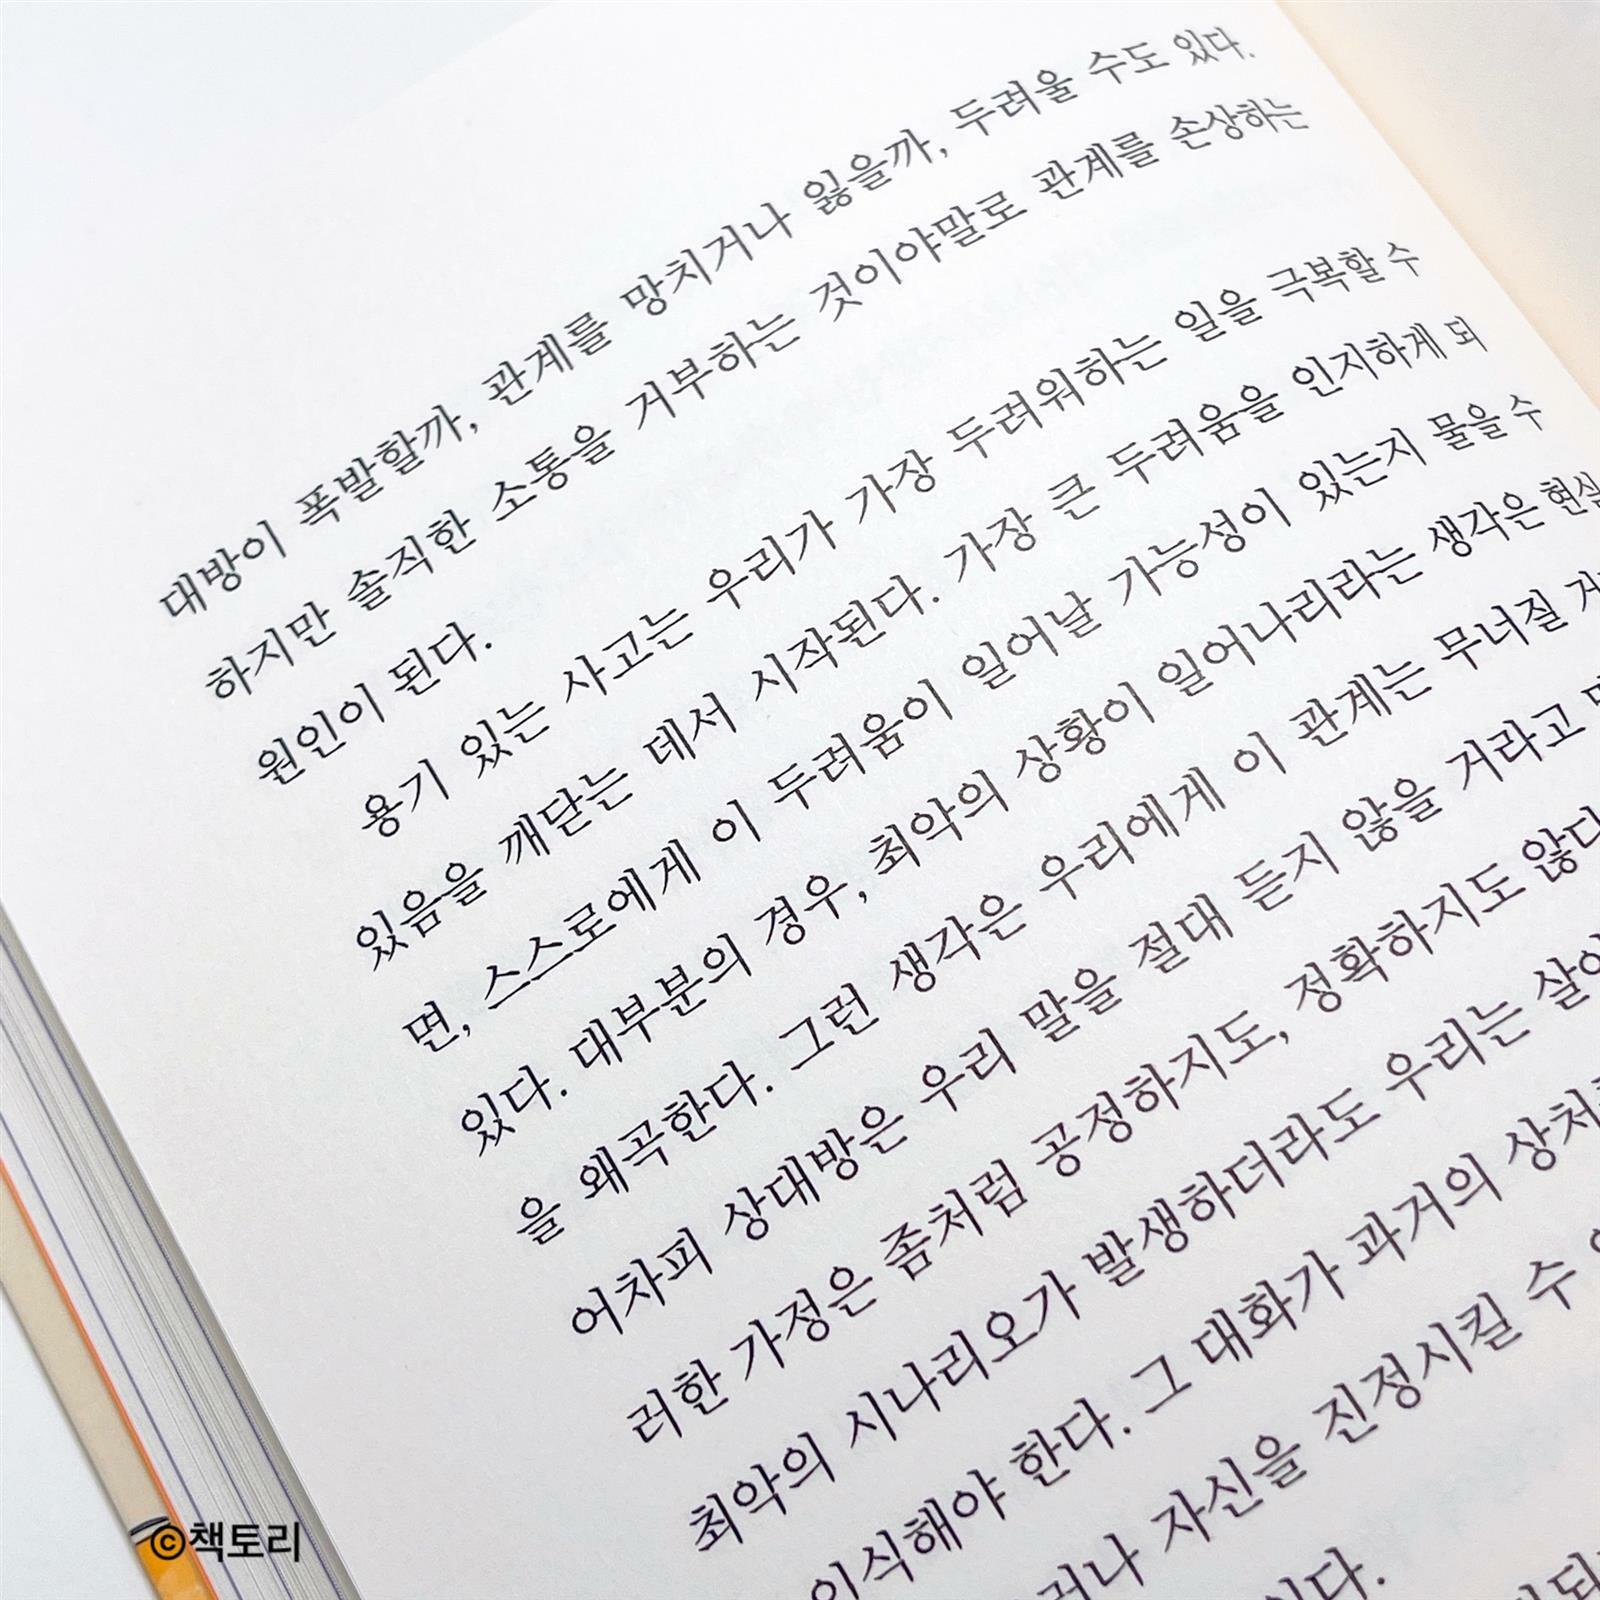 대방이 폭발할까, 관계를 망치거나 잃을까, 두려울 수도 있다.
하지만 솔직한 소통을 거부하는 것이야말로 관계를 손상하는
원인이 된다.
용기 있는 사고는 우리가 가장 두려워하는 일을 극복할 수
있음을 깨닫는 데서 시작된다. 가장 큰 두려움을 인지하게 되
면, 스스로에게 이 두려움이 일어날 가능성이 있는지 물을 수
있다. 대부분의 경우, 최악의 상황이 일어나리라는 생각은 현실
을 왜곡한다. 그런 생각은 우리에게 이 관계는 무너질
어차피 상대방은 우리 말을 절대 듣지 않을 거라고
러한 가정은 좀처럼 공정하지도, 정확하지도 않다
최악의 시나리오가 발생하더라도 우리는
인식해야 한다. 그 대화가 과거의
자신을 진정시킬 수
©책토리